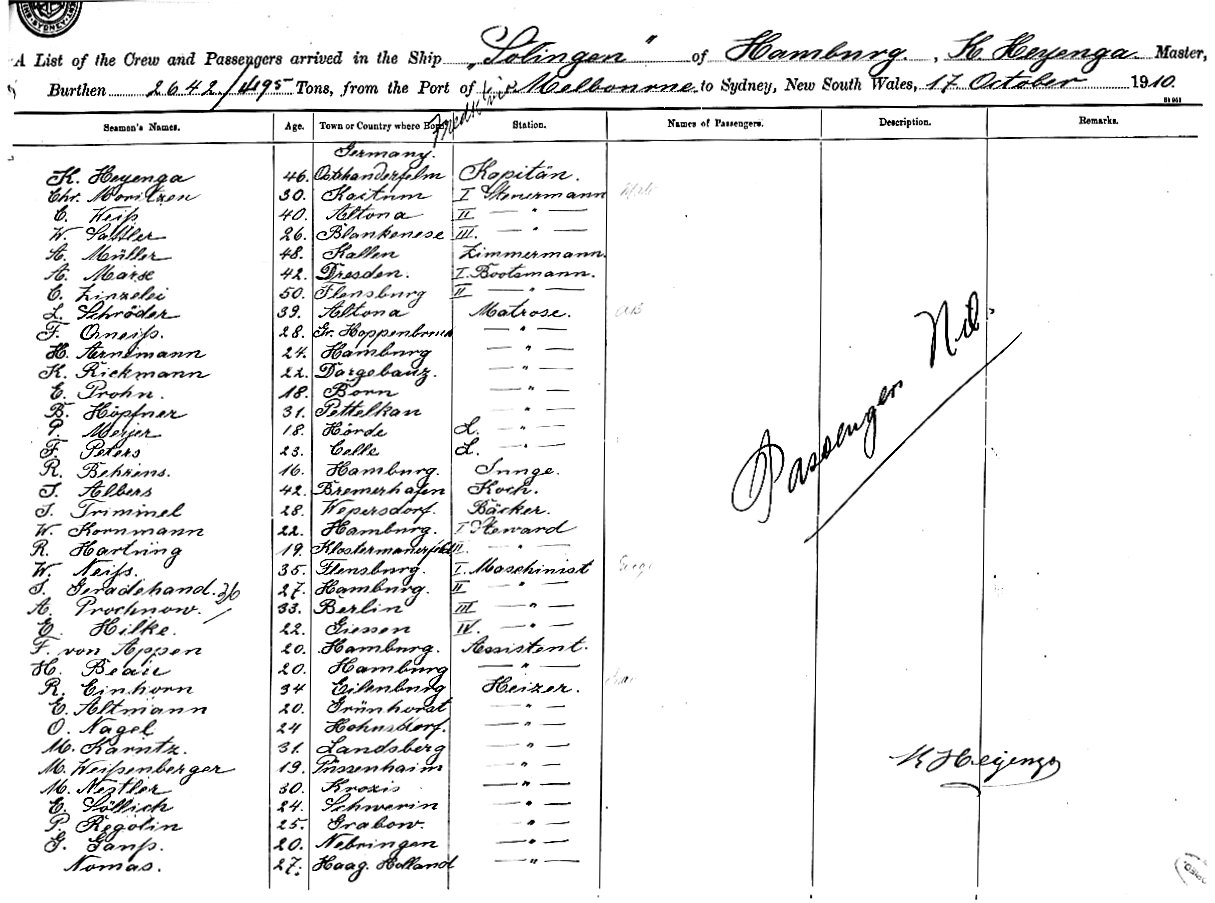 SYDNEY
A List of the Crew and Passengers arrived in the Ship „Solingen" of Hamburg, K. Heyenga Master,
Burthen 2642/4195 Tons, from the Port of Melbourne to Sydney, New South Wales, 17 October 1910.
Seamen's Names. Age. Town or Country where Born Station. Names of Passengers. Description. Remarks.
Germany.
K. Heyenga 46. Kapitän.
Chr. Moritzen 30. Kaitum I Steuermann
C. Weiß 40. Altona II — " —
W. Sattler 26. Blankenese III. — " —
A. Müller 48. Kallen Zimmermann.
A. Marse 42. Dresden. I. Bootsmann.
C. Zinzelei 50. Flensburg II — " —
L. Schröder 39. Altona Matrose. AB
F. Ohneiß. 28. Gr. Hoppenbruch — " —
H. Arnemann 24. Hamburg — " —
K. Rickmann 22. Dargebanz. — " —
E. Prohn. 18. Born — " —
B. Höpfner 31. Pettelkau — " —
P. Meijer 18. Hörde L. — " —
F. Peters 23. Celle L. — " —
R. Behrens. 16. Hamburg. Junge.
J. Albers 42. Bremerhafen Koch.
J. Trimmel 28. Wepersdorf. Bäcker.
W. Kornmann 22. Hamburg. I Steward
R. Hartung 19. II. — " —
W. Neiß. 35. Flensburg. I. Maschinist
J. Geradehand. 27. Hamburg. II — " —
A. Prochnow. 33. Berlin III — " —
E. Hilke. 22. Giessen IV. — " —
F. von Appen 20. Hamburg. Assistent.
H. Beau 20. Hamburg — " —
R. Einhorn 34 Eilenburg Heizer.
E. Altmann 20. Grünhorst — " —
O. Nagel 24 Hohnsdorf. — " —
M. Karntz. 31. Landsberg — " —
M. Weißenberger 19. Püssenheim — " —
M. Nestler 30. — " —
E. Söllich 24. Schwerin — " —
P. Regolin 25. Grabow. — " —
G. Ganß. 20. Nebringen — " —
Nomas. 27. Haag. Holland — " —
Passengers Nil.
K Heyenga